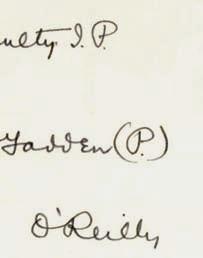 ulty I.P.
Fadden (P.)
O'Reilly